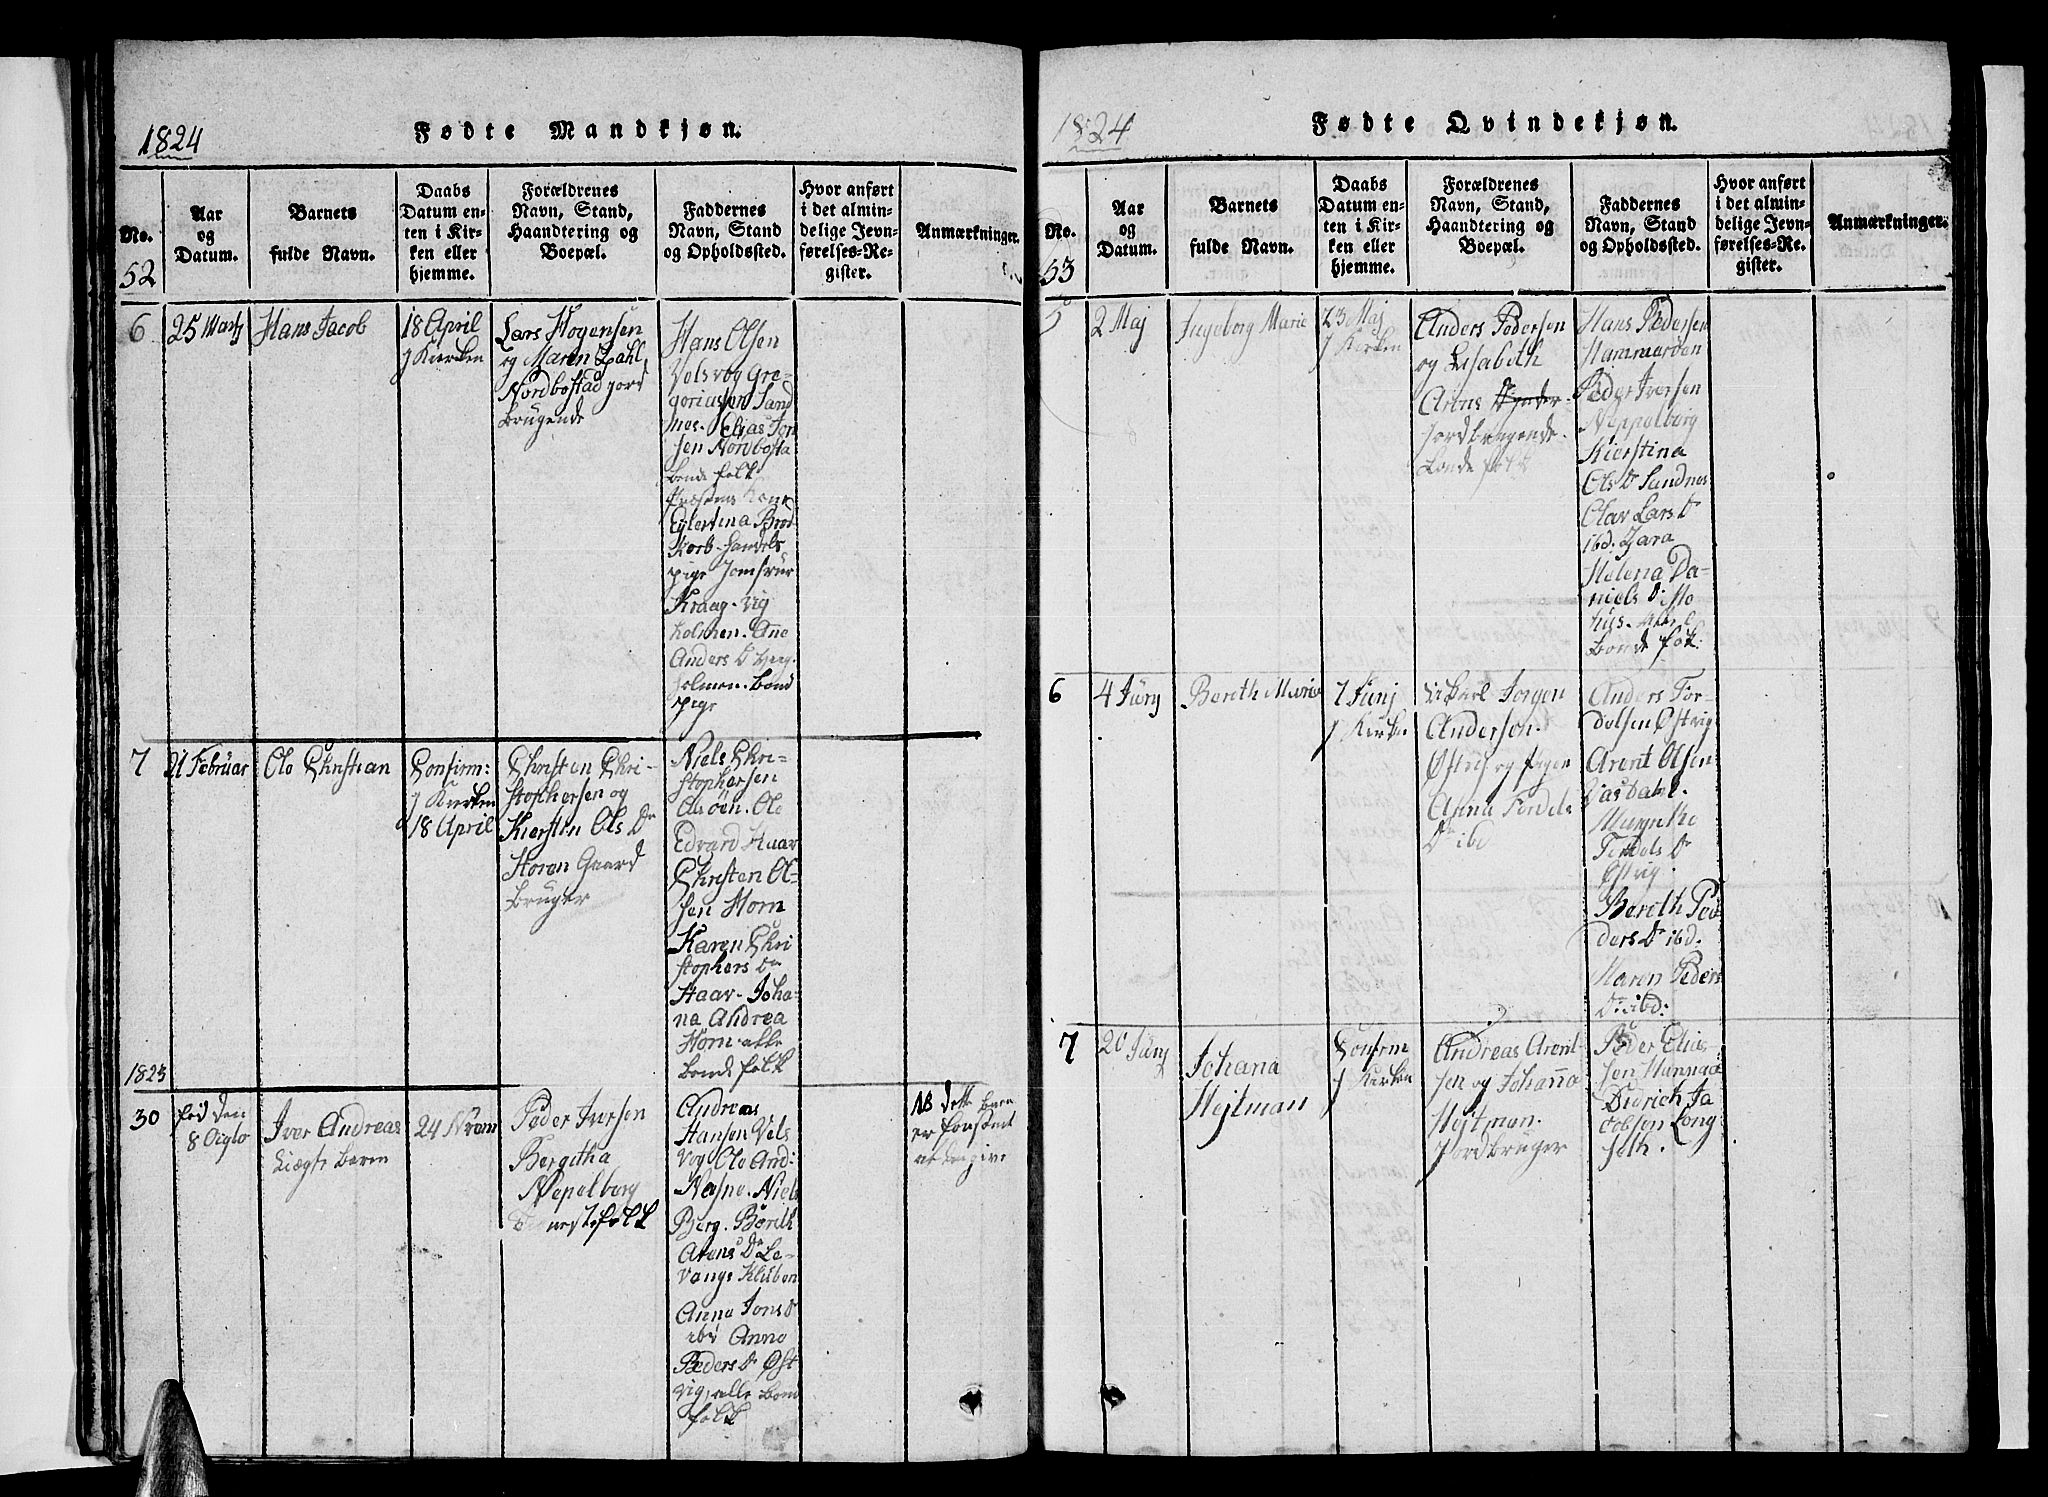 1824
Fødte Mandkjøn.
No.
52
Aar
og
Datum.
Barnets
fulde Navn.
Daabs
Datum en-
ten i Kir-
ken eller
hjemme.
Forældrenes
Navn, Stand,
Haandtering og
Boepæl.
Faddernes
Navn, Stand
og Opholdssted.
Hvor anført
i det almin-
delige Jevn-
førelses-Re-
gister.
Anmærkninger.
6
25 Marts
Hans Jacob
18 April
J Kierken
Lars Hogensen
og Maren Dahl
Nordbostad jord
brugende
Hans Olsen
Velsvog Gre-
goriussen Sand
nos. Elias Jon
sen Nordbosta
bonde folk
Kone
Eylertina Brod
korb. handels
pige Jomfrue
Kraag. Vig
holmen. Ane
Anders Dr
holmen. bond
pige
7
21 Februar
Ole Christian
Confirm:
J Kierken
18 April
Christen Chri-
stophersen og
Kiersten Ols Dr
Horen Gaard
bruger
Niels Chri-
stophersen
Ole
Edvard Haar
Christen Ol-
sen Horn
Karen Chri
stophers Dr
Haar. Joha-
na Andrea
Horn. alle
bonde folk
1823
30
fød den
8
Iver Andreas
Uægte barn
24 Nvem
Peder Iversen
Bergitha
Nepelberg
tienestefolk
Andreas
Hansen Vels
vog Ole And:
Nesne. Niels
Berg. Børith
Arens Dr Le-
vangs Kluben
Anna Jons Dr
ibd Anne
Peders Dr Øst
vig, alle bond
folk
NB dette barn
er forsømt
at
1824
Fødte Qvindekjøn.
No.
53
Aar
og
Datum.
Barnets
fulde Navn.
Daabs
Datum en-
ten i Kir-
ken eller
hjemme.
Forældrenes
Navn, Stand,
Haandtering og
Boepæl.
Faddernes
Navn, Stand
og Opholdssted.
Hvor anført
i det almin-
delige Jevn-
førelses-Re-
gister.
Anmærkninger.
5
2 Maj
Ingeborg Marie
23 Maj
J Kirken
Anders Pedersen
og Lisabeth
Arens
Jordbrugende
bonde folk
Hans Pedersen
Hammarøen
Peder Iversen
Neppelberg
Kierstina
Ols Dr Sandnes
Olav Lars Dr
ibd. Zara
Helena Da-
niels Dr Mo
hus. alle
bonde folk.
6
4 Junj
Bereth Maria
7 Junj
J Kirken
Jorgen
Andersen.
Østvig og pigen
Anna Tordels
Dr ibd
Anders Tor-
delsen Østvig
Arent Olsen
Vasdahl.
Tordels Dr
Østvig.
Bereth Pe
ders Dr ibd.
Karen Peders
Dr ibd:
7
20 Junj
Johana
Hejtman
Confirm
J Kirken
Andreas Arent-
sen og Johanna
Hejtman.
Jordbruger
Peder Elias-
sen
Didrich Ja
cobsen Long
seth.